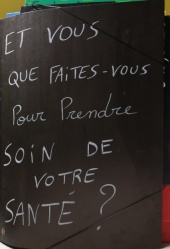 ET VOUS
QUE FAITES-VOUS
Pour Prendre
SOIN DE
VOTRE
SANTÉ ?